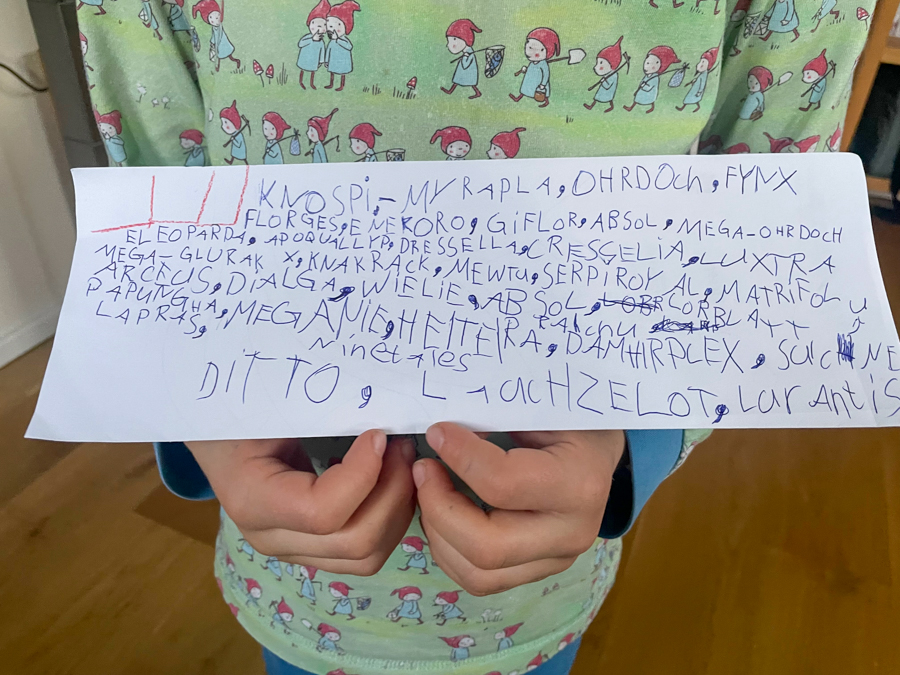 KNOSPi,-MYRAPLA, OHRDOch, FYNX
FLORGES, ENEKORO, GiFLOR, ABSOL, MEGA-OHRDOCH
ELEOPARDA, APOQUALLYP, DRESSELLA, CRESSELiA, LUXTRA
MEGA-GLURAK X, KNAKRACK, MEWTU, SERPiROYAL, MATRIFOL
ARCEUS, DiALGA, WiELiE, ABSOL, CORBLAYY u
PAPUNGHA, MEGANiE, HEITEIRA, RAichu, DAMHIRPLEX, SuicNE
LAPRAS, Ninetales
DITTO, LachZELOT, LurAntis